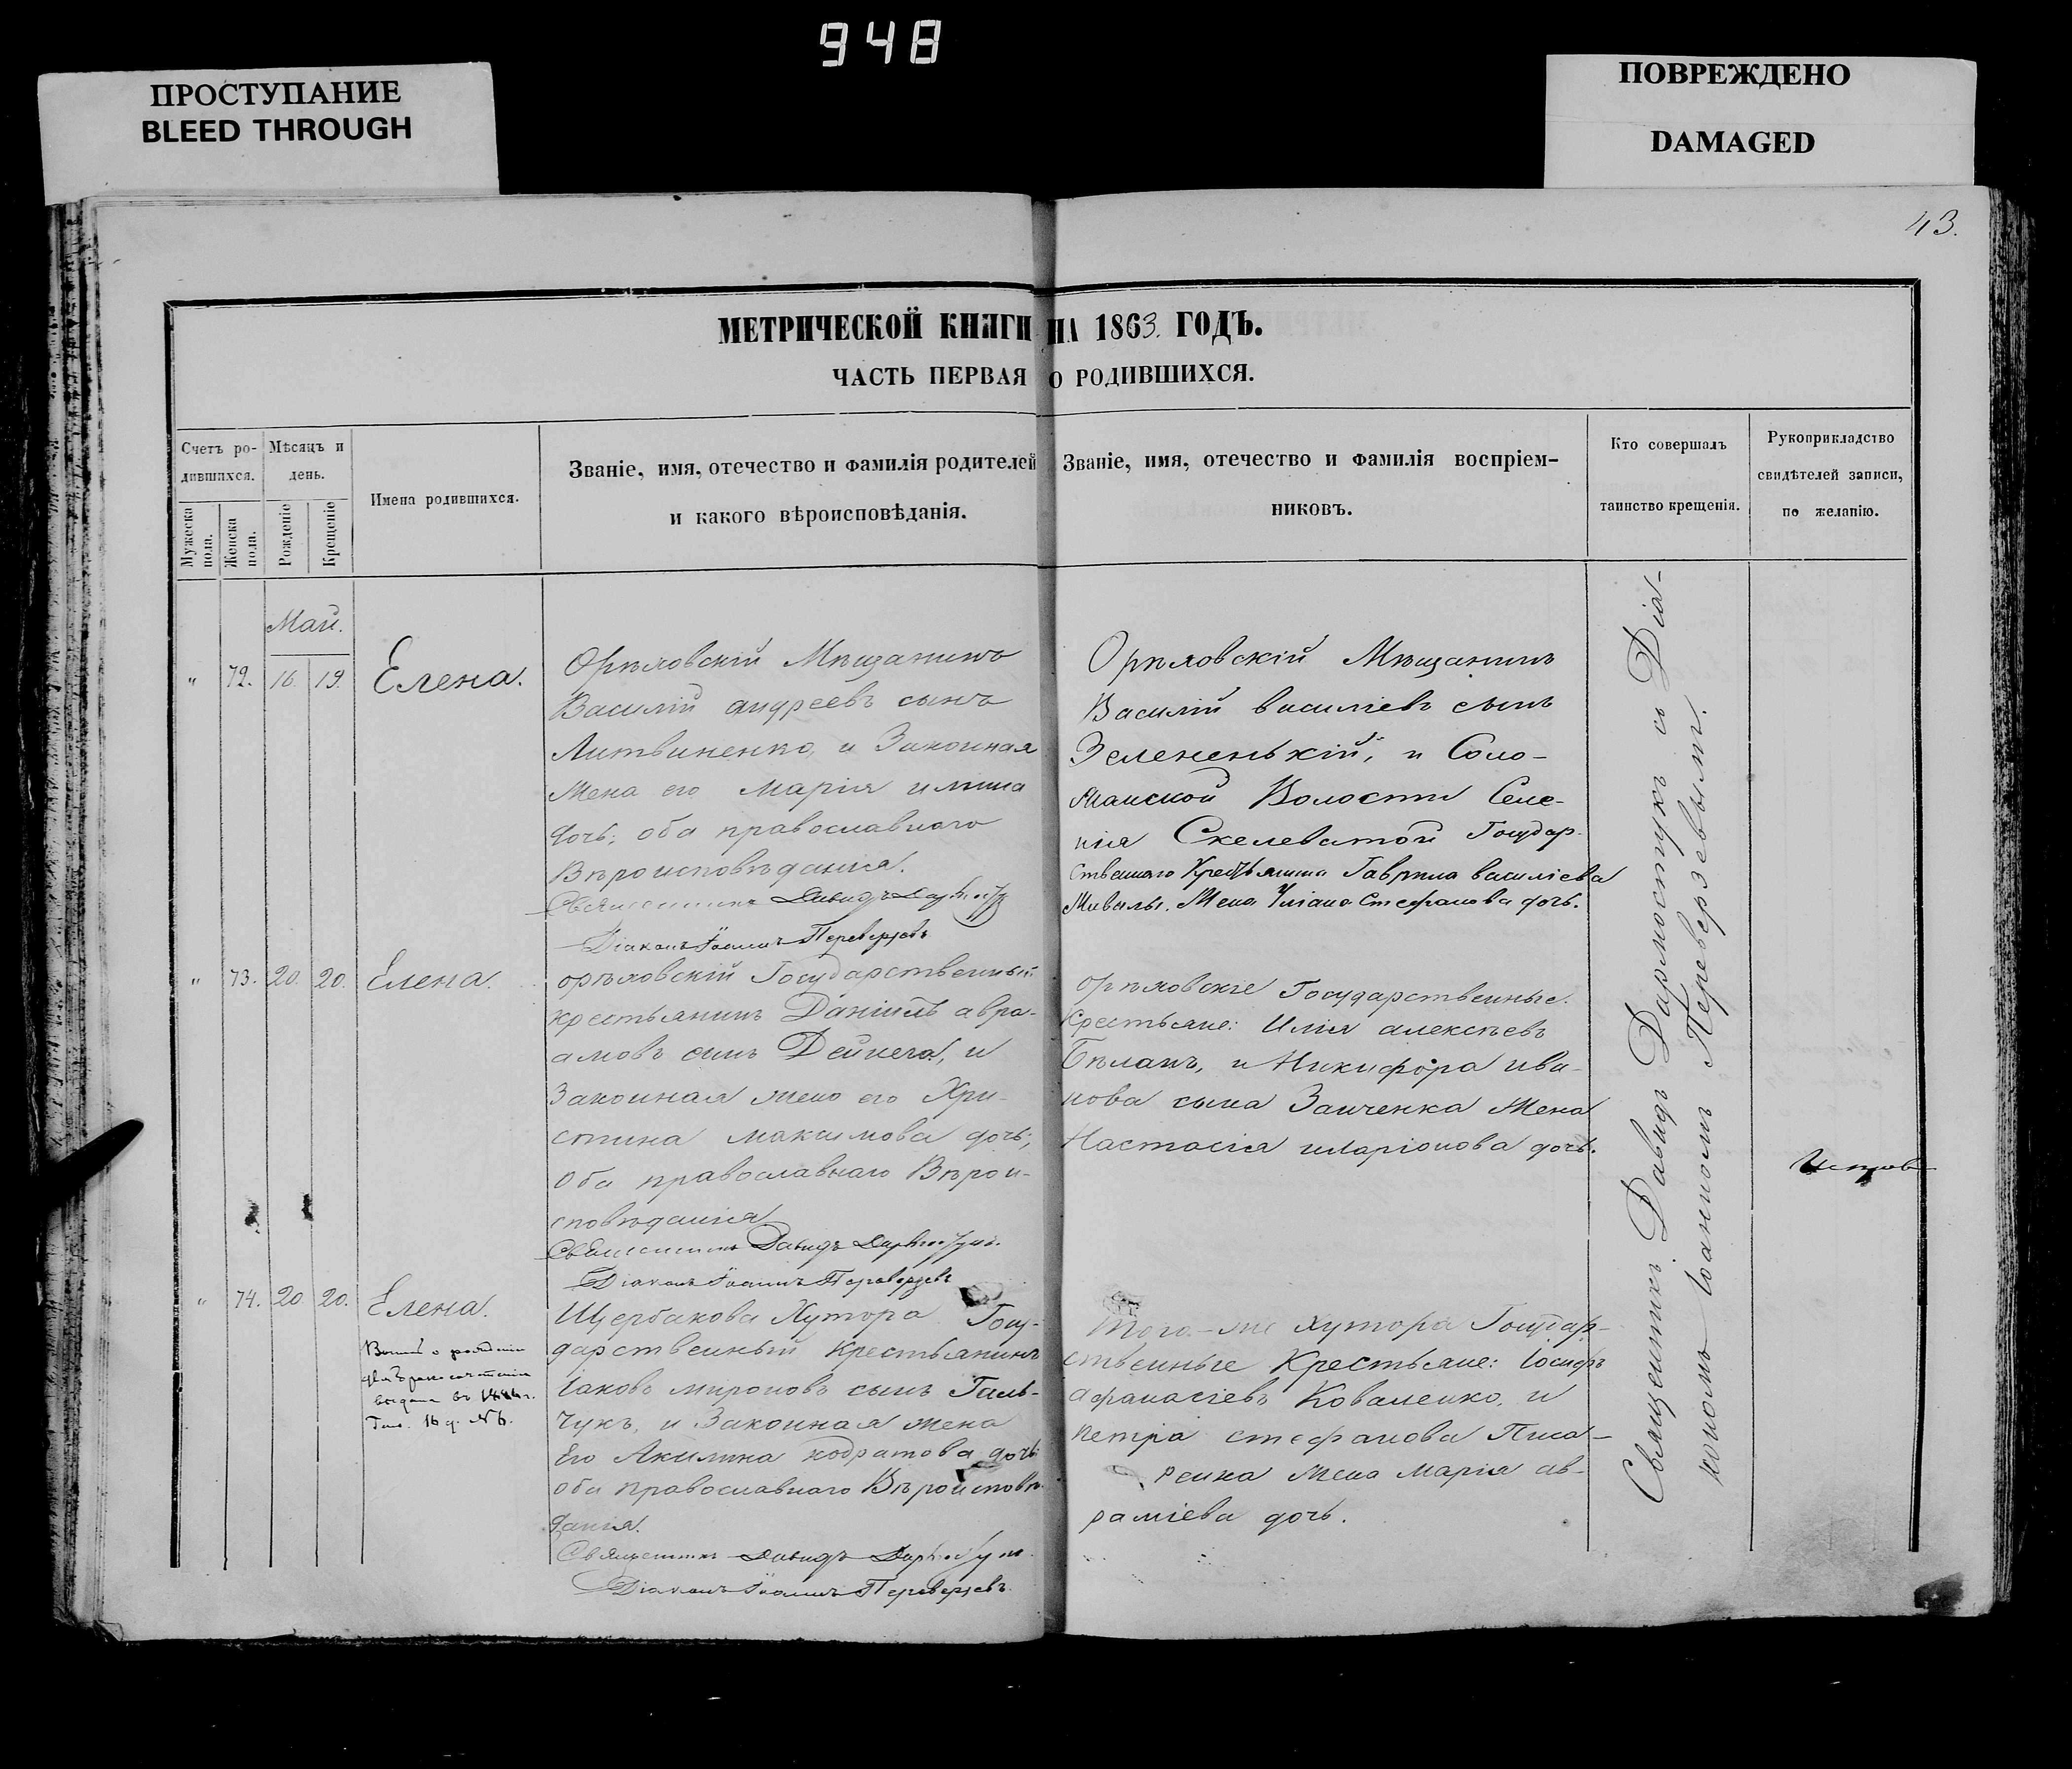 948
ПРОСТУПАНИЕ
BLEED THROUGH
ПОВРЕЖДЕНО
DAMAGED
43.
МЕТРИЧЕСКОЙ КНИГИ НА 1863. ГОДЪ.
ЧАСТЬ ПЕРВАЯ О РОДИВШИХСЯ.
Счетъ ро-
дившихся.
Мужеска
пола.
Женска
пола.
Мѣсяцъ и
день.
Рожденіе
Крещеніе
Имена родившихся.
Званіе, имя, отечество и фамилія родителей
и какого вѣроисповѣданія.
Званіе, имя, отечество и фамилія воспріем-
никовъ.
Кто совершалъ
таинство крещенія.
Рукоприкладство
свидѣтелей записи,
по желанію.
Май.
" 72. 16. 19. Елена.
Орѣховскій Мѣщанинъ
Василій андреевъ сынъ
Литвиненко, и Законная
Жена его Марія
дочь; оба православнаго
Вѣроисповѣданія.
Священникъ Давидъ
Діаконъ Іоаннъ Переверзевъ
Орѣховскій Мѣщанинъ
Василій василіевъ сынъ
Зелененькій, и Соло-
Волости Селе-
нія Скелеватой Государ-
ственнаго Крестьянина Гавріила василіева
Жена Уліана Стефанова дочь.
" 73. 20. 20. Елена.
орѣховскій Государственный
крестьянинъ Даніилъ авра-
амовъ сынъ Дейнега, и
Законная жена его Хри-
стина максимова дочь;
Оба православнаго Вѣрои-
сповѣданія
Священникъ Давидъ
Діаконъ Іоаннъ Переверзевъ
орѣховскіе Государственные
Крестьяне: Илія алексѣевъ
Бѣланъ, и Никифора ива-
нова сына Заиченка Жена
Настасія иларіонова дочь.
" 74. 20. 20. Елена.
выдана въ
Щербакова Хутора Госу-
дарственный Крестьянинъ
Іаковъ мироновъ сынъ Галь-
чукъ, и Законная жена
Его Акилина кодратова дочь
оба православнаго Вѣроисповѣ-
данія.
Священникъ Давидъ
Діаконъ Іоаннъ Переверзевъ
Того-же Хутора Государ-
ственные Крестьяне: Іосифъ
афанасіевъ Коваленко, и
Петра стефанова Писа-
ренка Жена Марія ав-
раміева дочь.
Священникъ Давидъ Дармостукъ съ Діа-
кономъ Іоанномъ Переверзевымъ.